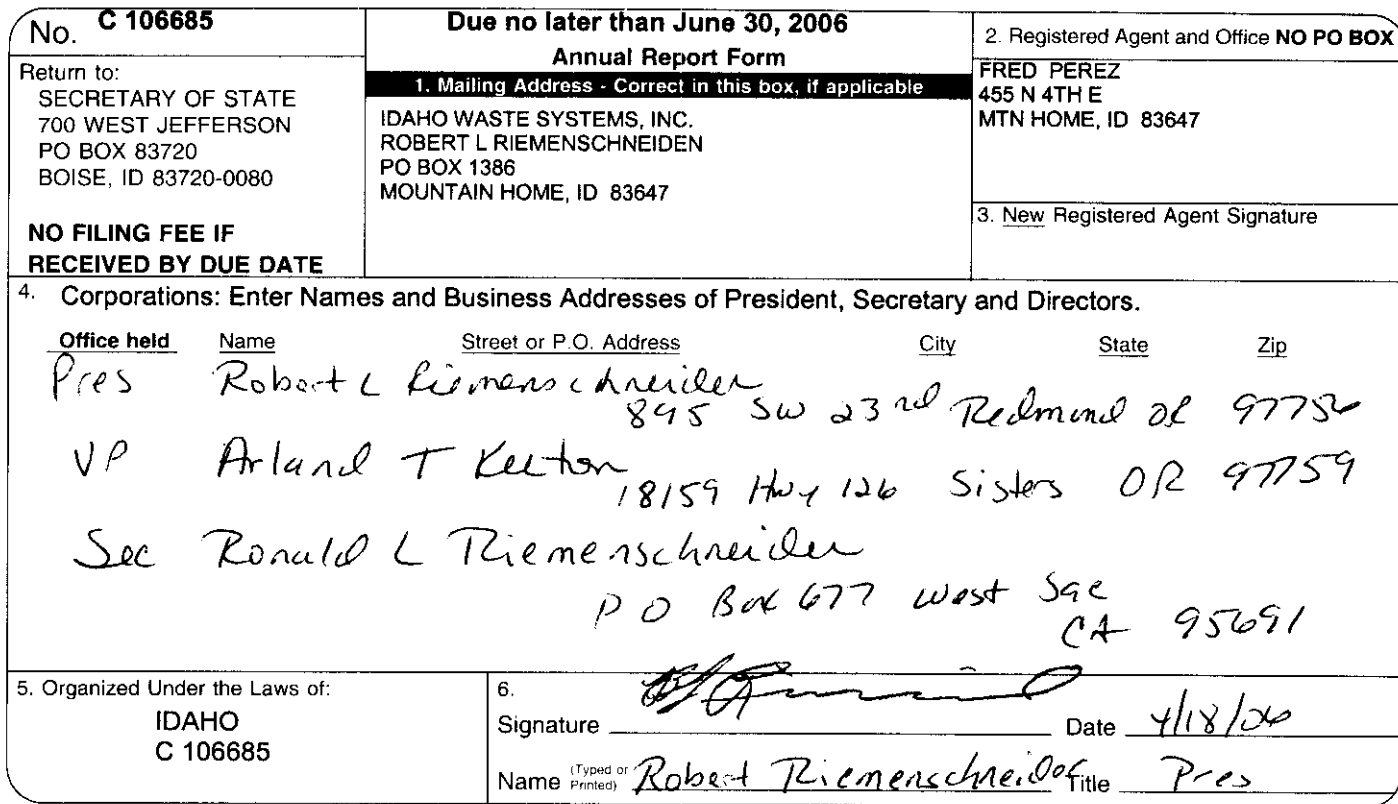 No. C 106685
Return to:
SECRETARY OF STATE
700 WEST JEFFERSON
PO BOX 83720
BOISE, ID 83720-0080
NO FILING FEE IF
RECEIVED BY DUE DATE
Due no later than June 30, 2006
Annual Report Form
1. Mailing Address - Correct in this box, if applicable
IDAHO WASTE SYSTEMS, INC.
ROBERT L RIEMENSCHNEIDEN
PO BOX 1386
MOUNTAIN HOME, ID 83647
2. Registered Agent and Office NO PO BOX
FRED PEREZ
455 N 4TH E
MTN HOME, ID 83647
3. New Registered Agent Signature
4. Corporations: Enter Names and Business Addresses of President, Secretary and Directors.
Office held Name Street or P.O. Address City State Zip
Pres Robert L Riemenschneider
895 SW 23rd Redmond OR 97756
VP Arland T Keeton
18159 Hwy 126 Sisters OR 97759
Sec Ronald L Riemenschneider
P O Box 677 West Sac
CA 95691
5. Organized Under the Laws of:
IDAHO
C 106685
6.
Signature Date 4/18/06
Name (Typed or Printed) Robert Riemenschneider Title Pres